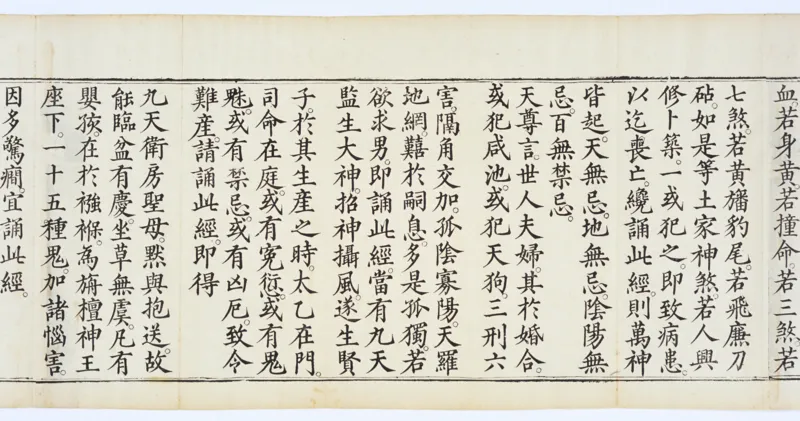 血。若身黃若撞命若三煞若
七煞。若黃旛豹尾。若飛廉刀
砧。如是等土家神煞。若人興
修卜築。一或犯之。即致病患。
以迄喪亡。纔誦此經。則萬神
皆起。天無忌。地無忌。陰陽無
忌。百無禁忌。
天尊言。世人夫婦。其於婚合。
或犯咸池。或犯天狗。三刑六
害。隔角交加。孤陰寡陽。天羅
地網。囏於嗣息。多是孤獨。若
欲求男。即誦此經。當有九天
監生大神。招神攝風。遂生賢
子。於其生產之時。太乙在門。
司命在庭。或有冤愆。或有鬼
魅。或有禁忌。或有凶厄。致令
難產。請誦此經。即得
九天衛房聖母。默與抱送。故
能臨盆有慶。坐草無虞。凡有
嬰孩。在於襁褓。為旃檀神王
座下。一十五種鬼。加諸惱害。
因多驚癇。宜誦此經。